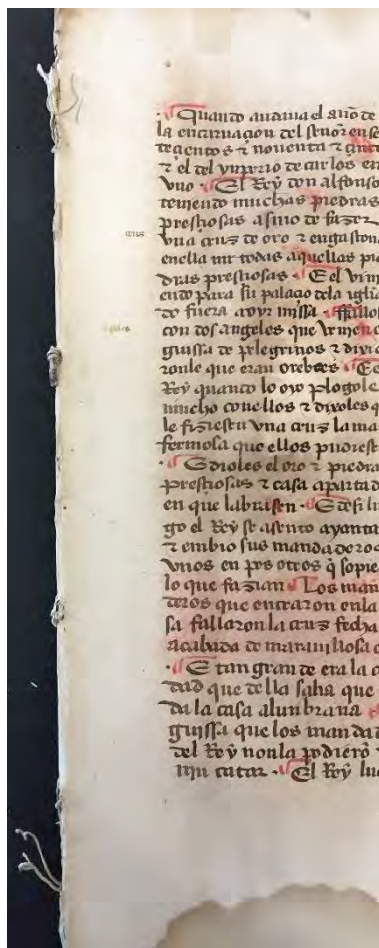 Quando andaua el año de
la encarnaçion del señor en se
teçientos ⁊ nouenta ⁊ çinco
⁊ el del ynperio de carlos en
vno. El Rey don alfonso
teniendo muchas piedras
preshosas asmo de fazer
vna cruz de oro ⁊ engaston
enella mr todas aquellas pie
dras preshosas. E el vini
endo para su palaçio dela iglia
do fuera a oyr missa. ffallo
con dos angeles que vinien
guissa de pelegrinos ⁊ dixi
ronle que eran orebres E
Rey quando lo oyo plogole
mucho conellos ⁊ dixoles q
le fiziesen vna cruz la ma
fermosa que ellos pudiese
E dioles el oro ⁊ piedra
preshosas ⁊ casa apartad
en que labrasen. E desi lu
go el Rey se asento a yanta
⁊ enbio sus mandaderos
vnos en pos otros q̄ sopie
lo que fazian Los man
deros que entraron enla
sa fallaron la cruz fecha
acabada de marauillosa o
E tan grande era la c
dad que della salia que
da la casa alunbraua
guissa que los mandad
del Rey non la podierō
nin catar. El Rey lu